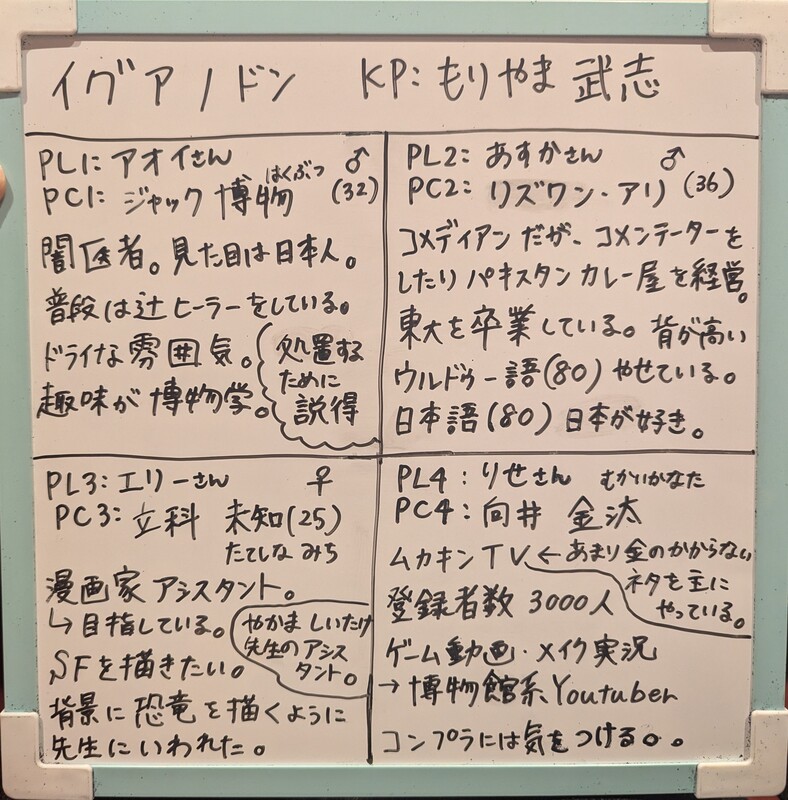 イグアノドン KP:もりやま 武志
PL1: アオイさん ♂
はくぶつ
PC1: ジャック 博物 (32)
闇医者。見た目は日本人。
普段は辻ヒーラーをしている。
ドライな雰囲気。
趣味が博物学。
処置する
ために
説得
PL2: あすかさん ♂
PC2: リズワン・アリ (36)
コメディアンだが、コメンテーターを
したりパキスタンカレー屋を経営。
東大を卒業している。背が高い
ウルドゥー語(80) やせている。
日本語(80) 日本が好き。
PL3: エリーさん ♀
PC3: 立科 未知(25)
たてしな みち
漫画家アシスタント。
↳目指している。
SFを描きたい。
背景に恐竜を描くように
先生にいわれた。
やかましいたけ
先生のアシス
タント。
PL4: りせさん むかいかなた
PC4: 向井 金汰
ムカキンTV ← あまり金のかからない
ネタを主に
やっている。
登録者数 3000人
ゲーム動画・メイク実況
→博物館系Youtuber
コンプラには気をつける。。